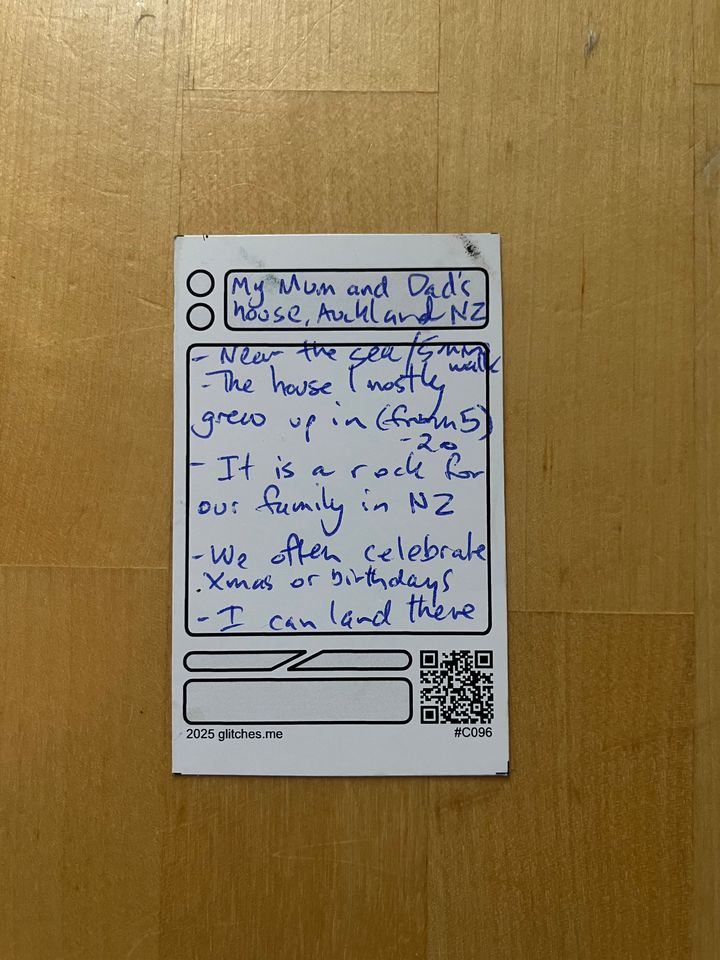 My Mum and Dad's
house, Auckland NZ
- Near the sea / 5 min
walk
- The house I mostly
grew up in (from 5)
- 20
- It is a rock for
our family in NZ
- We often celebrate
Xmas or birthdays
- I can land there
2025 glitches.me
#C096